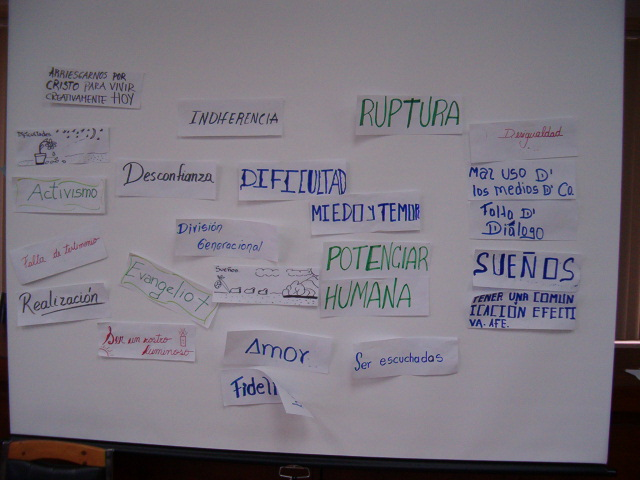 ARRIESGARNOS POR
CRISTO PARA VIVIR
CREATIVAMENTE HOY
INDIFERENCIA
RUPTURA
Desigualdad
Desconfianza
DIFICULTAD
MAL USO D'
los medios D' Co.
Activismo
MIEDO Y TEMOR
Falta D'
Diálogo
División
Generacional
Falta de testimonio
POTENCIAR
HUMANA
SUEÑOS
Evangelio +
Sueños
Realización
TENER UNA COMUN
ICACIÓN EFECTI
VA. AFE.
Ser un rostro
luminoso
Amor
Ser escuchadas